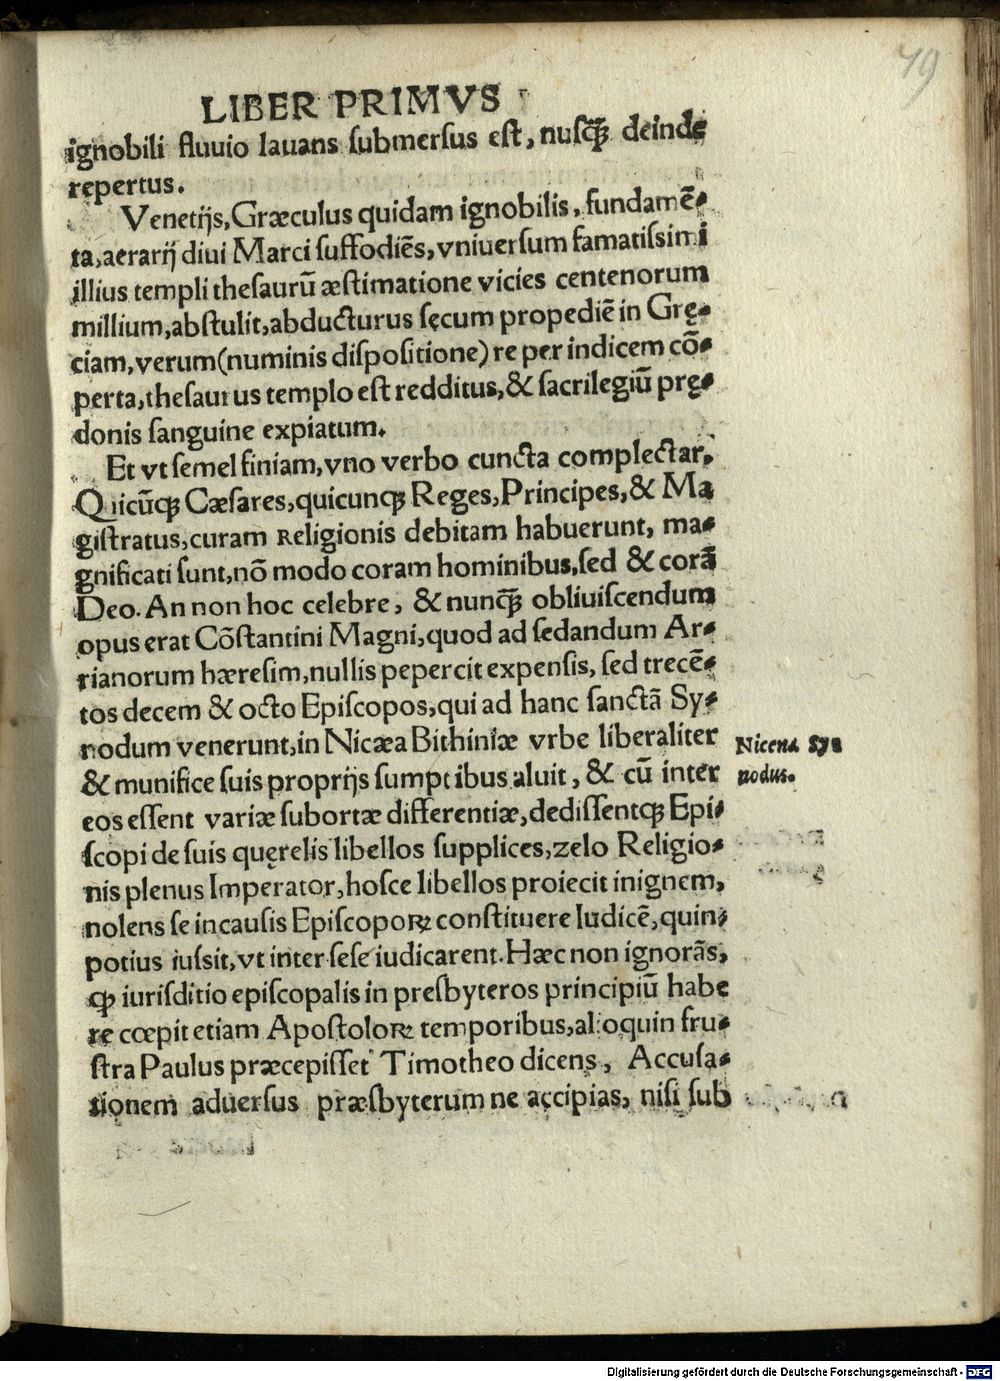 79
LIBER PRIMVS
ignobili fluuio lauans ſubmerſus eſt, nuſꝗ̃ deinde
repertus.
Venetijs, Græculus quidam ignobilis, fundamē⸗
ta, aerarij diui Marci ſuffodiēs, vniuerſum famatiſsimi
illius templi theſaurū æſtimatione vicies centenorum
millium, abſtulit, abducturus ſęcum propediē in Grę⸗
ciam, verum (numinis diſpoſitione) re per indicem cō⸗
perta, theſaurus templo eſt redditus, & ſacrilegiū prę⸗
donis ſanguine expiatum.
Et vt ſemel finiam, vno verbo cuncta complectar,
Quicūꝙ Cæſares, quicunꝙ Reges, Principes, & Ma
giſtratus, curam Religionis debitam habuerunt, ma⸗
gnificati ſunt, nō modo coram hominibus, ſed & corā
Deo. An non hoc celebre, & nunꝗ̃ obliuiſcendum
opus erat Cōſtantini Magni, quod ad ſedandum Ar⸗
rianorum hæreſim, nullis pepercit expenſis, ſed trecē⸗
tos decem & octo Epiſcopos, qui ad hanc ſanctā Sy⸗
nodum venerunt, in Nicæa Bithiniæ vrbe liberaliter
Nicena Sy⸗
nodus.
& munifice ſuis proprijs ſumptibus aluit, & cū inter
eos eſſent variæ ſubortæ differentiæ, dediſſentꝙ Epi⸗
ſcopi de ſuis quęrelis libellos ſupplices, zelo Religio⸗
nis plenus Imperator, hoſce libellos proiecit in ignem,
nolens ſe in cauſis Epiſcopoꝝ conſtituere Iudicē, quin⸗
potius iuſsit, vt inter ſeſe iudicarent. Hæc non ignorās,
ꝙ iuriſditio epiſcopalis in preſbyteros principiū habe
re cœpit etiam Apoſtoloꝝ temporibus, alioquin fru⸗
ſtra Paulus præcepiſſet Timotheo dicens, Accuſa⸗
tionem aduerſus præſbyterum ne accipias, niſi ſub
Digitalisierung gefördert durch die Deutsche Forschungsgemeinschaft - DFG